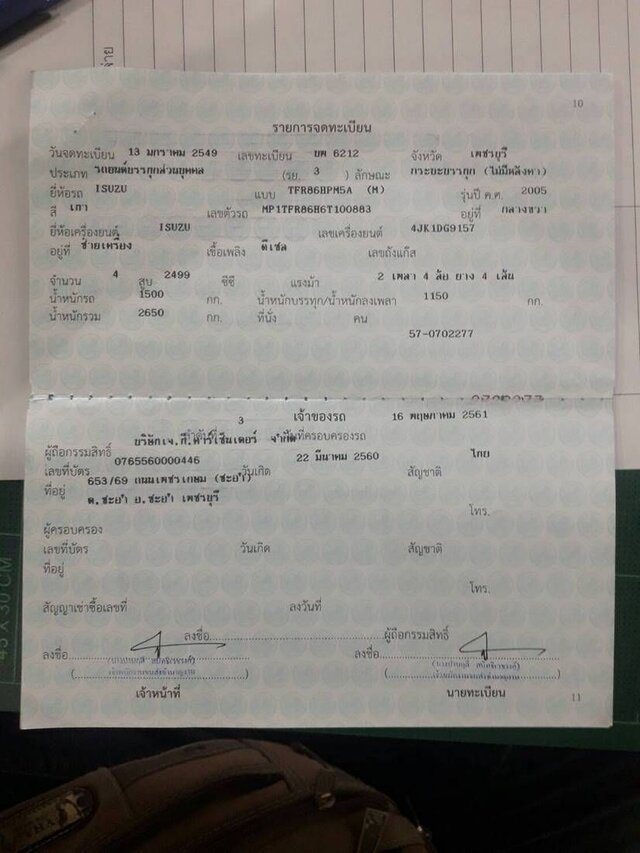 10
รายการจดทะเบียน
วันจดทะเบียน 13 มกราคม 2549 เลขทะเบียน บพ 6212 จังหวัด เพชรบุรี
ประเภท รถยนต์บรรทุกส่วนบุคคล (รย. 3 ) ลักษณะ กระบะบรรทุก (ไม่มีหลังคา)
ยี่ห้อรถ ISUZU แบบ TFR86HPM5A (M) รุ่นปี ค.ศ. 2005
สี เทา เลขตัวรถ MP1TFR86H6T100883 อยู่ที่ กลางขวา
ยี่ห้อเครื่องยนต์ ISUZU เลขเครื่องยนต์ 4JK1DG9157
อยู่ที่ ซ้ายเครื่อง เชื้อเพลิง ดีเซล เลขถังแก๊ส
จำนวน 4 สูบ 2499 ซีซี แรงม้า 2 เพลา 4 ล้อ ยาง 4 เส้น
น้ำหนักรถ 1500 กก. น้ำหนักบรรทุก/น้ำหนักลงเพลา 1150 กก.
น้ำหนักรวม 2650 กก. ที่นั่ง คน
57-0702277
3 เจ้าของรถ 16 พฤษภาคม 2561
วันที่ครอบครองรถ
ผู้ถือกรรมสิทธิ์ บริษัทเจ.ที.คาร์เซ็นเตอร์ จำกัด
เลขที่บัตร 0765560000446 วันเกิด 22 มีนาคม 2560 สัญชาติ ไทย
ที่อยู่ 653/69 ถนนเพชรเกษม (ชะอำ)
ต.ชะอำ อ.ชะอำ เพชรบุรี
โทร.
ผู้ครอบครอง
เลขที่บัตร วันเกิด สัญชาติ
ที่อยู่
โทร.
สัญญาเช่าซื้อเลขที่ ลงวันที่
ลงชื่อ ผู้ถือกรรมสิทธิ์
ลงชื่อ ลงชื่อ
เจ้าหน้าที่ นายทะเบียน
11